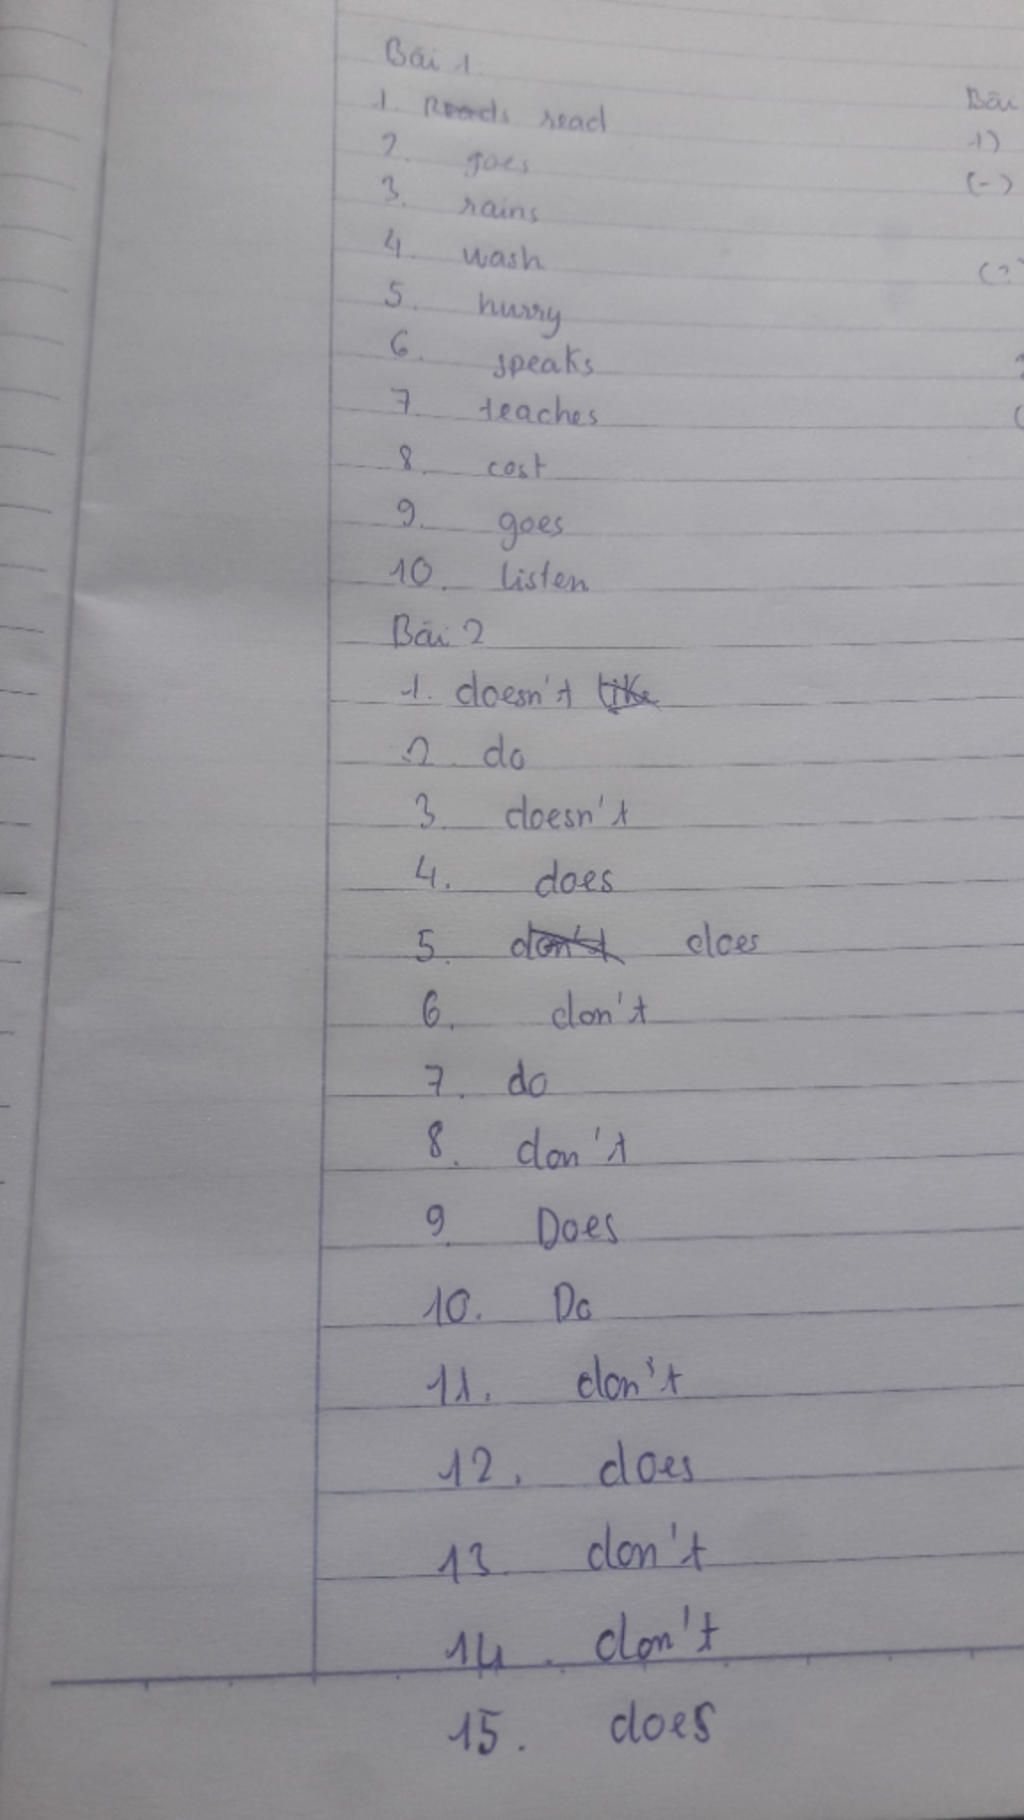 Bài 1
1. read
2. goes
3. rains
4. wash
5. hurry
6. speaks
7. teaches
8. cost
9. goes
10. listen
Bài 2
1. doesn't like
2. do
3. doesn't
4. does
5. don't does
6. don't
7. do
8. don't
9. Does
10. Do
11. don't
12. does
13. don't
14. don't
15. does
Bài
1)
(-)
(?